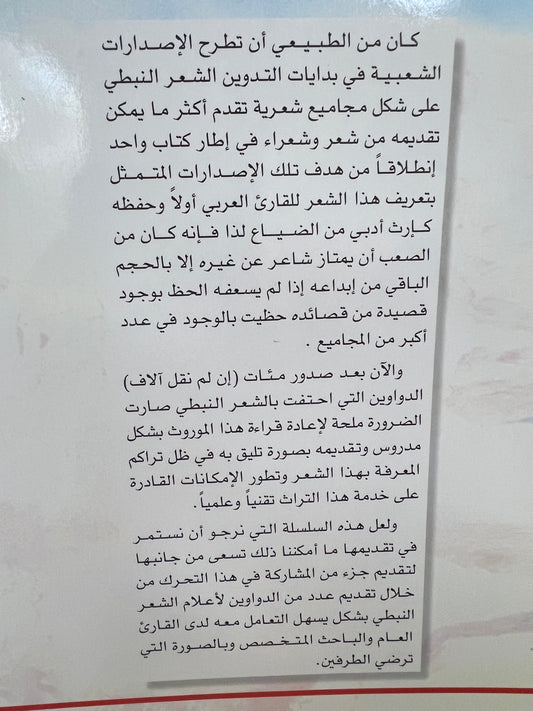 كان من الطبيعي أن تطرح الإصدارات
الشعبية في بدايات التدوين الشعر النبطي
على شكل مجاميع شعرية تقدم أكثر ما يمكن
تقديمه من شعر وشعراء في إطار كتاب واحد
إنطلاقاً من هدف تلك الإصدارات المتمثل
بتعريف هذا الشعر للقارئ العربي أولاً وحفظه
كإرث أدبي من الضياع لذا فإنه كان من
الصعب أن يمتاز شاعر عن غيره إلا بالحجم
الباقي من إبداعه إذا لم يسعفه الحظ بوجود
قصيدة من قصائده حظيت بالوجود في عدد
أكبر من المجاميع .
والآن بعد صدور مئات (إن لم نقل آلاف)
الدواوين التي احتفت بالشعر النبطي صارت
الضرورة ملحة لإعادة قراءة هذا الموروث بشكل
مدروس وتقديمه بصورة تليق به في ظل تراكم
المعرفة بهذا الشعر وتطور الإمكانات القادرة
على خدمة هذا التراث تقنياً وعلمياً.
ولعل هذه السلسلة التي نرجو أن نستمر
في تقديمها ما أمكننا ذلك تسعى من جانبها
لتقديم جزء من المشاركة في هذا التحرك من
خلال تقديم عدد من الدواوين لأعلام الشعر
النبطي بشكل يسهل التعامل معه لدى القارئ
العام والباحث المتخصص وبالصورة التي
ترضي الطرفين.